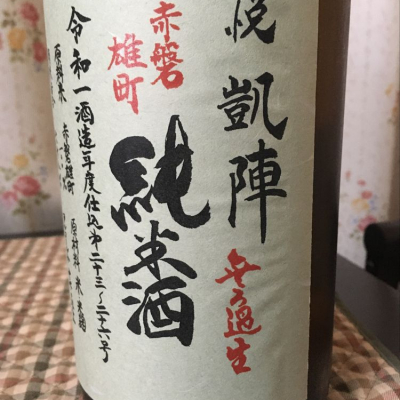 悦凱陣
無ろ過生
赤磐
雄町
純米酒
令和一酒造年度仕込第二十三～二十六号
原料米 赤磐雄町 原材料 米 米麹